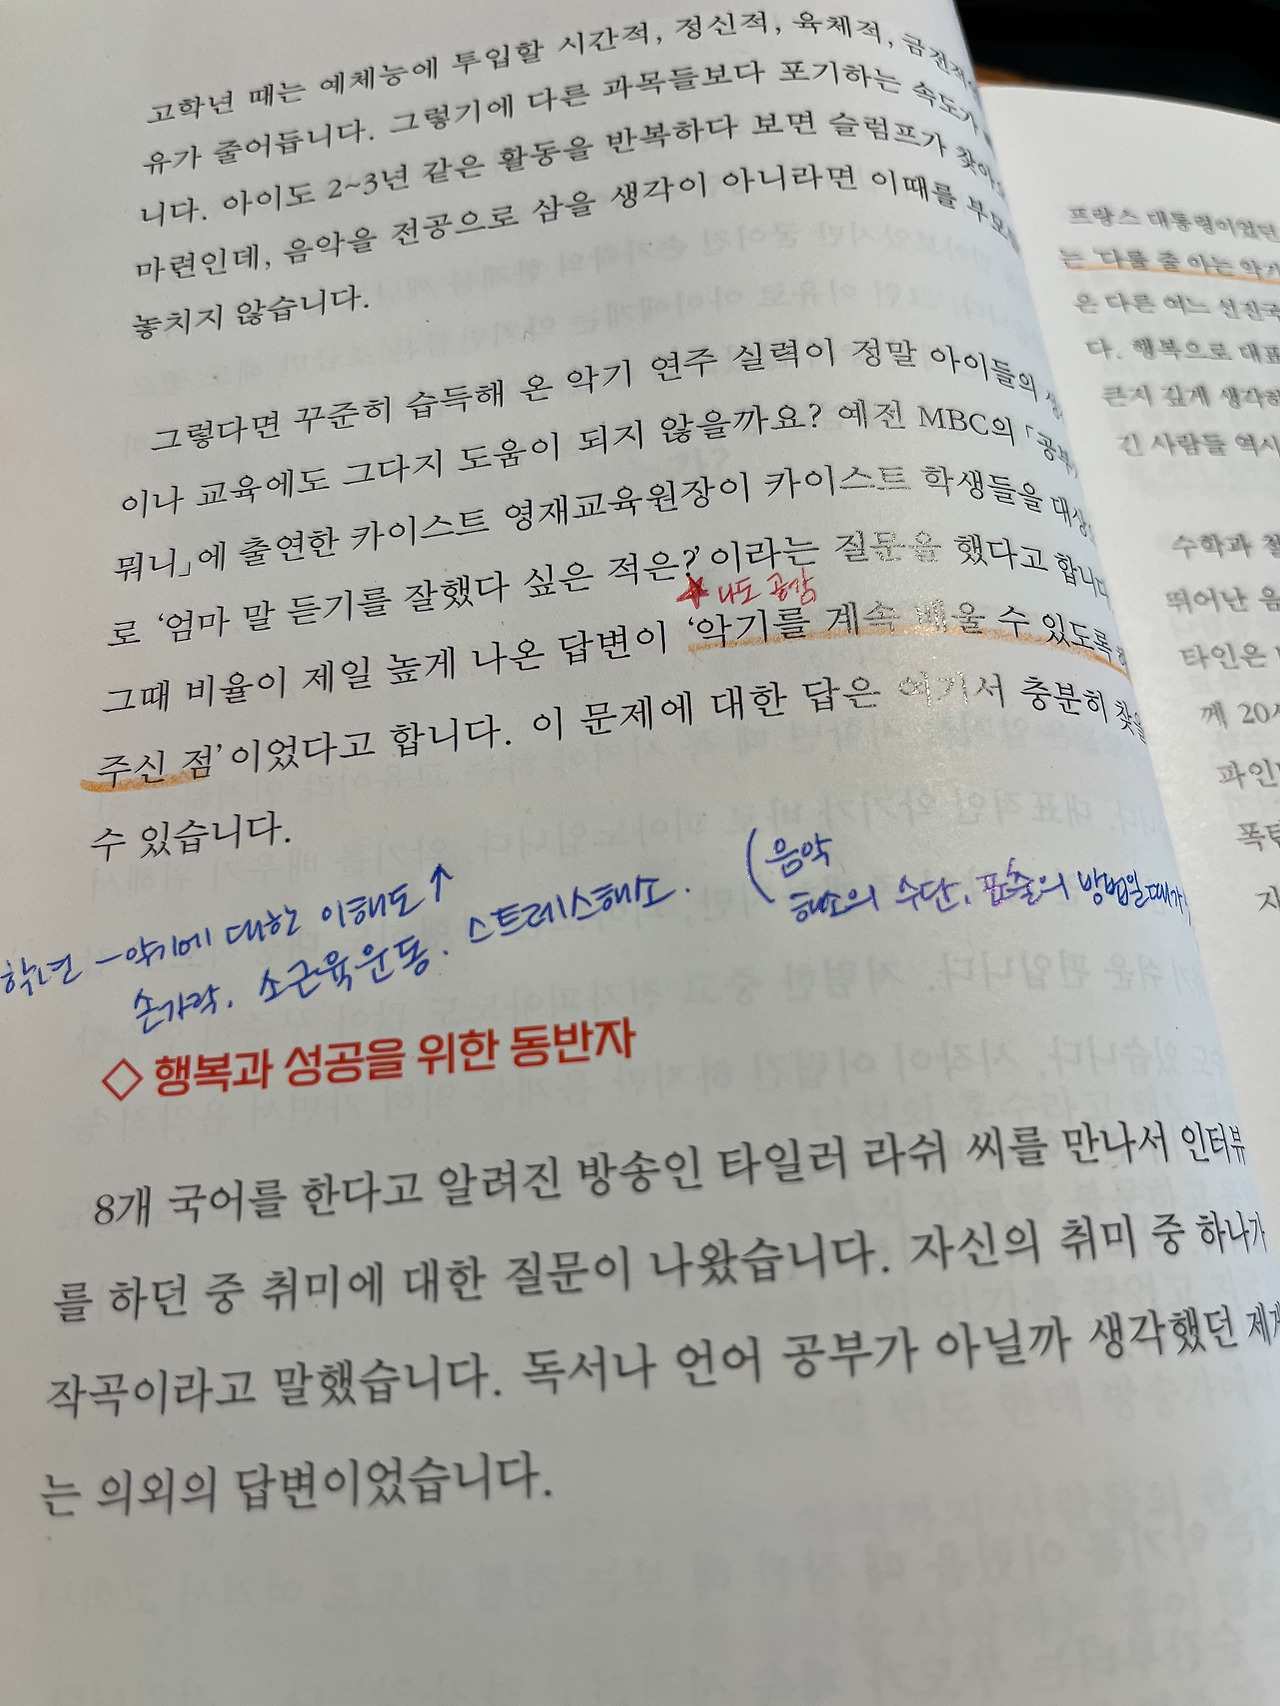 고학년 때는 예체능에 투입할 시간적, 정신적, 육체적, 금전적
유가 줄어듭니다. 그렇기에 다른 과목들보다 포기하는 속도가
니다. 아이도 2~3년 같은 활동을 반복하다 보면 슬럼프가 찾아
마련인데, 음악을 전공으로 삼을 생각이 아니라면 이때를 부모
놓치지 않습니다.
그렇다면 꾸준히 습득해 온 악기 연주 실력이 정말 아이들의
이나 교육에도 그다지 도움이 되지 않을까요? 예전 MBC의 「공부
뭐니」에 출연한 카이스트 영재교육원장이 카이스트 학생들을 대상
로 ‘엄마 말 듣기를 잘했다 싶은 적은?’이라는 질문을 했다고 합니다
★ 나도 공감
그때 비율이 제일 높게 나온 답변이 ‘악기를 계속 배울 수 있도록
주신 점’이었다고 합니다. 이 문제에 대한 답은 여기서 충분히 찾을
수 있습니다.
학년 – 악기에 대한 이해도↑
손가락. 소근육운동. 스트레스해소.
(음악
해소의 수단, 표출의 방법일때가
◇ 행복과 성공을 위한 동반자
8개 국어를 한다고 알려진 방송인 타일러 라쉬 씨를 만나서 인터뷰
를 하던 중 취미에 대한 질문이 나왔습니다. 자신의 취미 중 하나가
작곡이라고 말했습니다. 독서나 언어 공부가 아닐까 생각했던 제게
는 의외의 답변이었습니다.
프랑스 대통령이었던
는 다룰 줄 아는 악기
은 다른 어느 선진국
다. 행복으로 대표
큰지 깊게 생각하
긴 사람들 역시
수학과 철
뛰어난 음
타인은
께 20
파인
폭탄
자